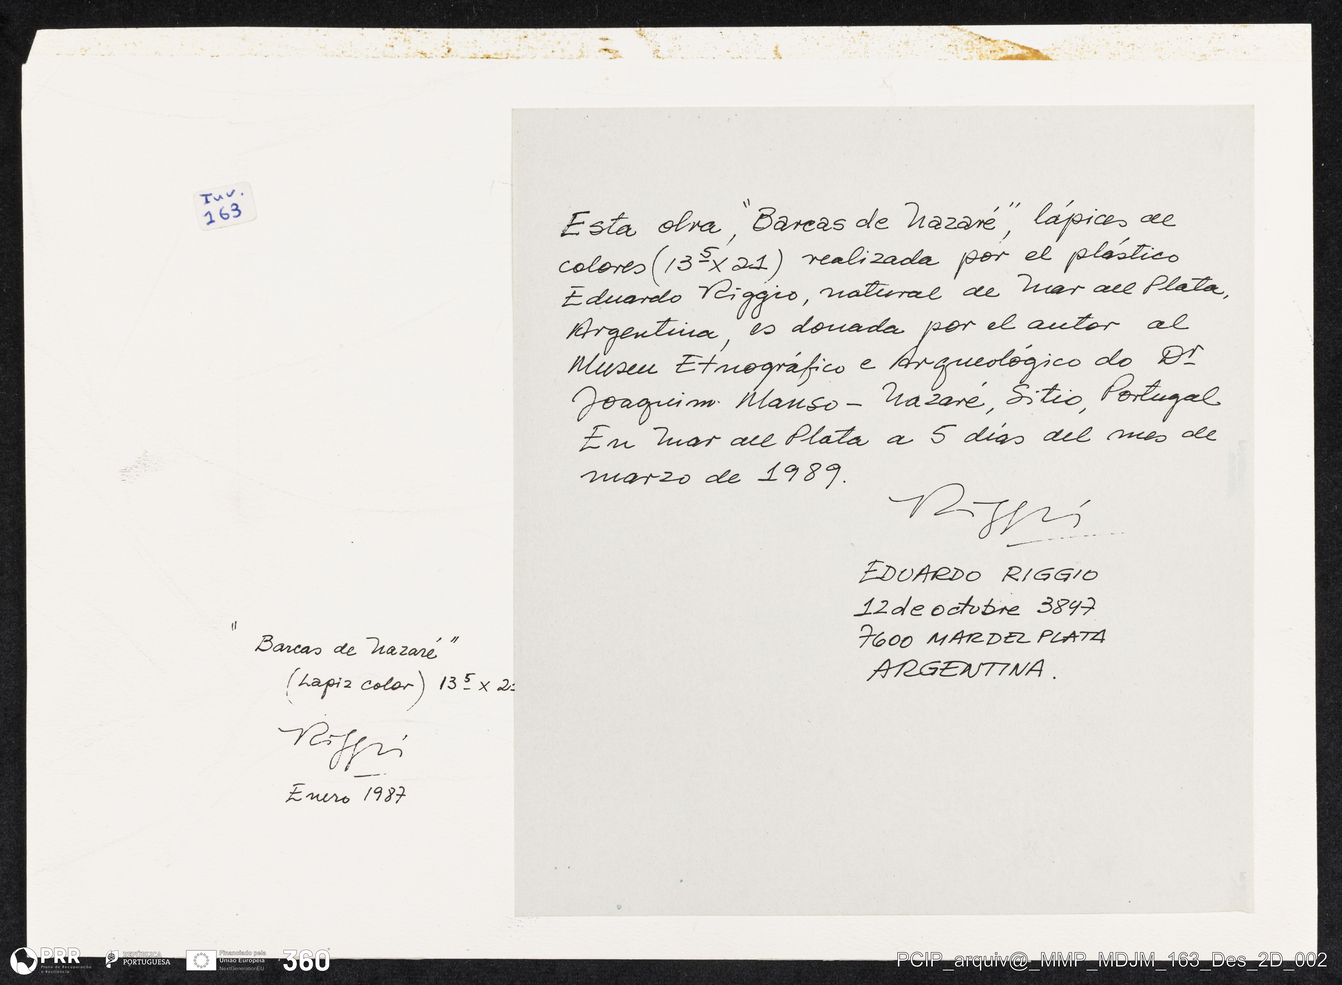 Inv.
163
Esta obra, "Barcas de Nazaré", lápices de
colores (13⁵ x 21) realizada por el plástico
Eduardo Riggio, natural de Mar del Plata,
Argentina, es donada por el autor al
Museu Etnográfico e Arqueológico do Dr
Joaquim Manso - Nazaré, Sitio, Portugal
En Mar del Plata a 5 días del mes de
marzo de 1989.
Riggio
EDUARDO RIGGIO
12 de octubre 3847
7600 MAR DEL PLATA
ARGENTINA.
"Barcas de Nazaré"
(Lapiz color) 13⁵ x 2
Riggio
Enero 1987
PRR
Plano de Recuperação e Resiliência
REPÚBLICA PORTUGUESA
Financiado pela
União Europeia
NextGenerationEU
360
PCIP_arquiv@_MMP_MDJM_163_Des_2D_002